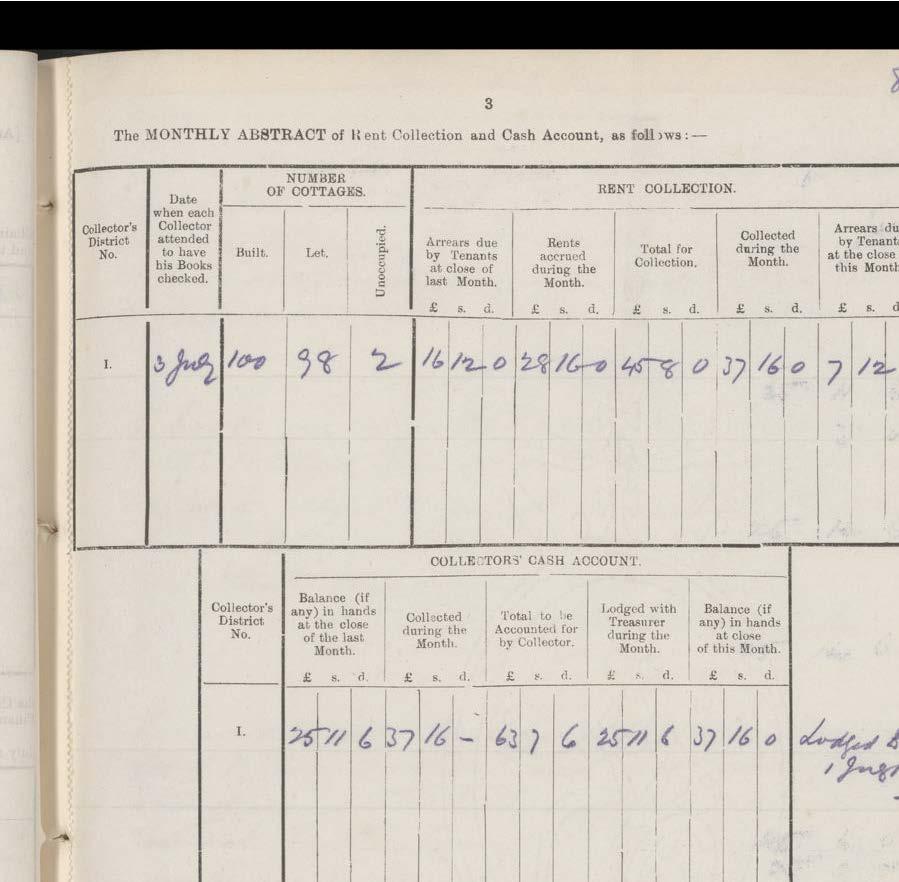 3
The MONTHLY ABSTRACT of Rent Collection and Cash Account, as follows:—
NUMBER
OF COTTAGES.
RENT COLLECTION.
Collector's
District
No.
Date
when each
Collector
attended
to have
his Books
checked.
Built.
Let.
Unoccupied.
Arrears due
by Tenants
at close of
last Month.
Rents
accrued
during the
Month.
Total for
Collection.
Collected
during the
Month.
Arrears du
by Tenant
at the close
this Month
£ s. d. £ s. d. £ s. d. £ s. d. £ s. d
I. 3 July 100 98 2 16 12 0 28 16 0 45 8 0 37 16 0 7 12
COLLECTORS' CASH ACCOUNT.
Collector's
District
No.
Balance (if
any) in hands
at the close
of the last
Month.
Collected
during the
Month.
Total to be
Accounted for
by Collector.
Lodged with
Treasurer
during the
Month.
Balance (if
any) in hands
at close
of this Month.
£ s. d. £ s. d. £ s. d. £ s. d. £ s. d.
I. 25 11 6 37 16 – 63 7 6 25 11 6 37 16 0 Lodged
1